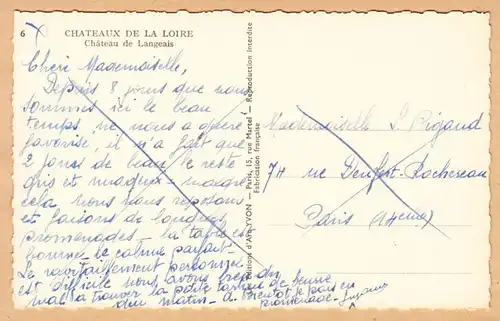 6 CHATEAUX DE LA LOIRE
Château de Langeais
Chère Mademoiselle,
Depuis 8 jours que nous
sommes ici le beau
temps ne nous a guère
favorisé, il n'a fait que
2 jours de beau, le reste
gris et malgré
cela nous nous reposons
et faisons de longues
promenades - la table est
bonne, le calme parfait.
Le ravitaillement
est difficile nous avons du
mal a trouver la petite de beurre
du matin - A Bientôt je pars en
promenade.
Editions d'Art YVON - Paris, 15, rue Martel - Reproduction interdite
Fabrication française
Mademoiselle S. Rigaud
74 rue Denfert-Rochereau
Paris (14ème)